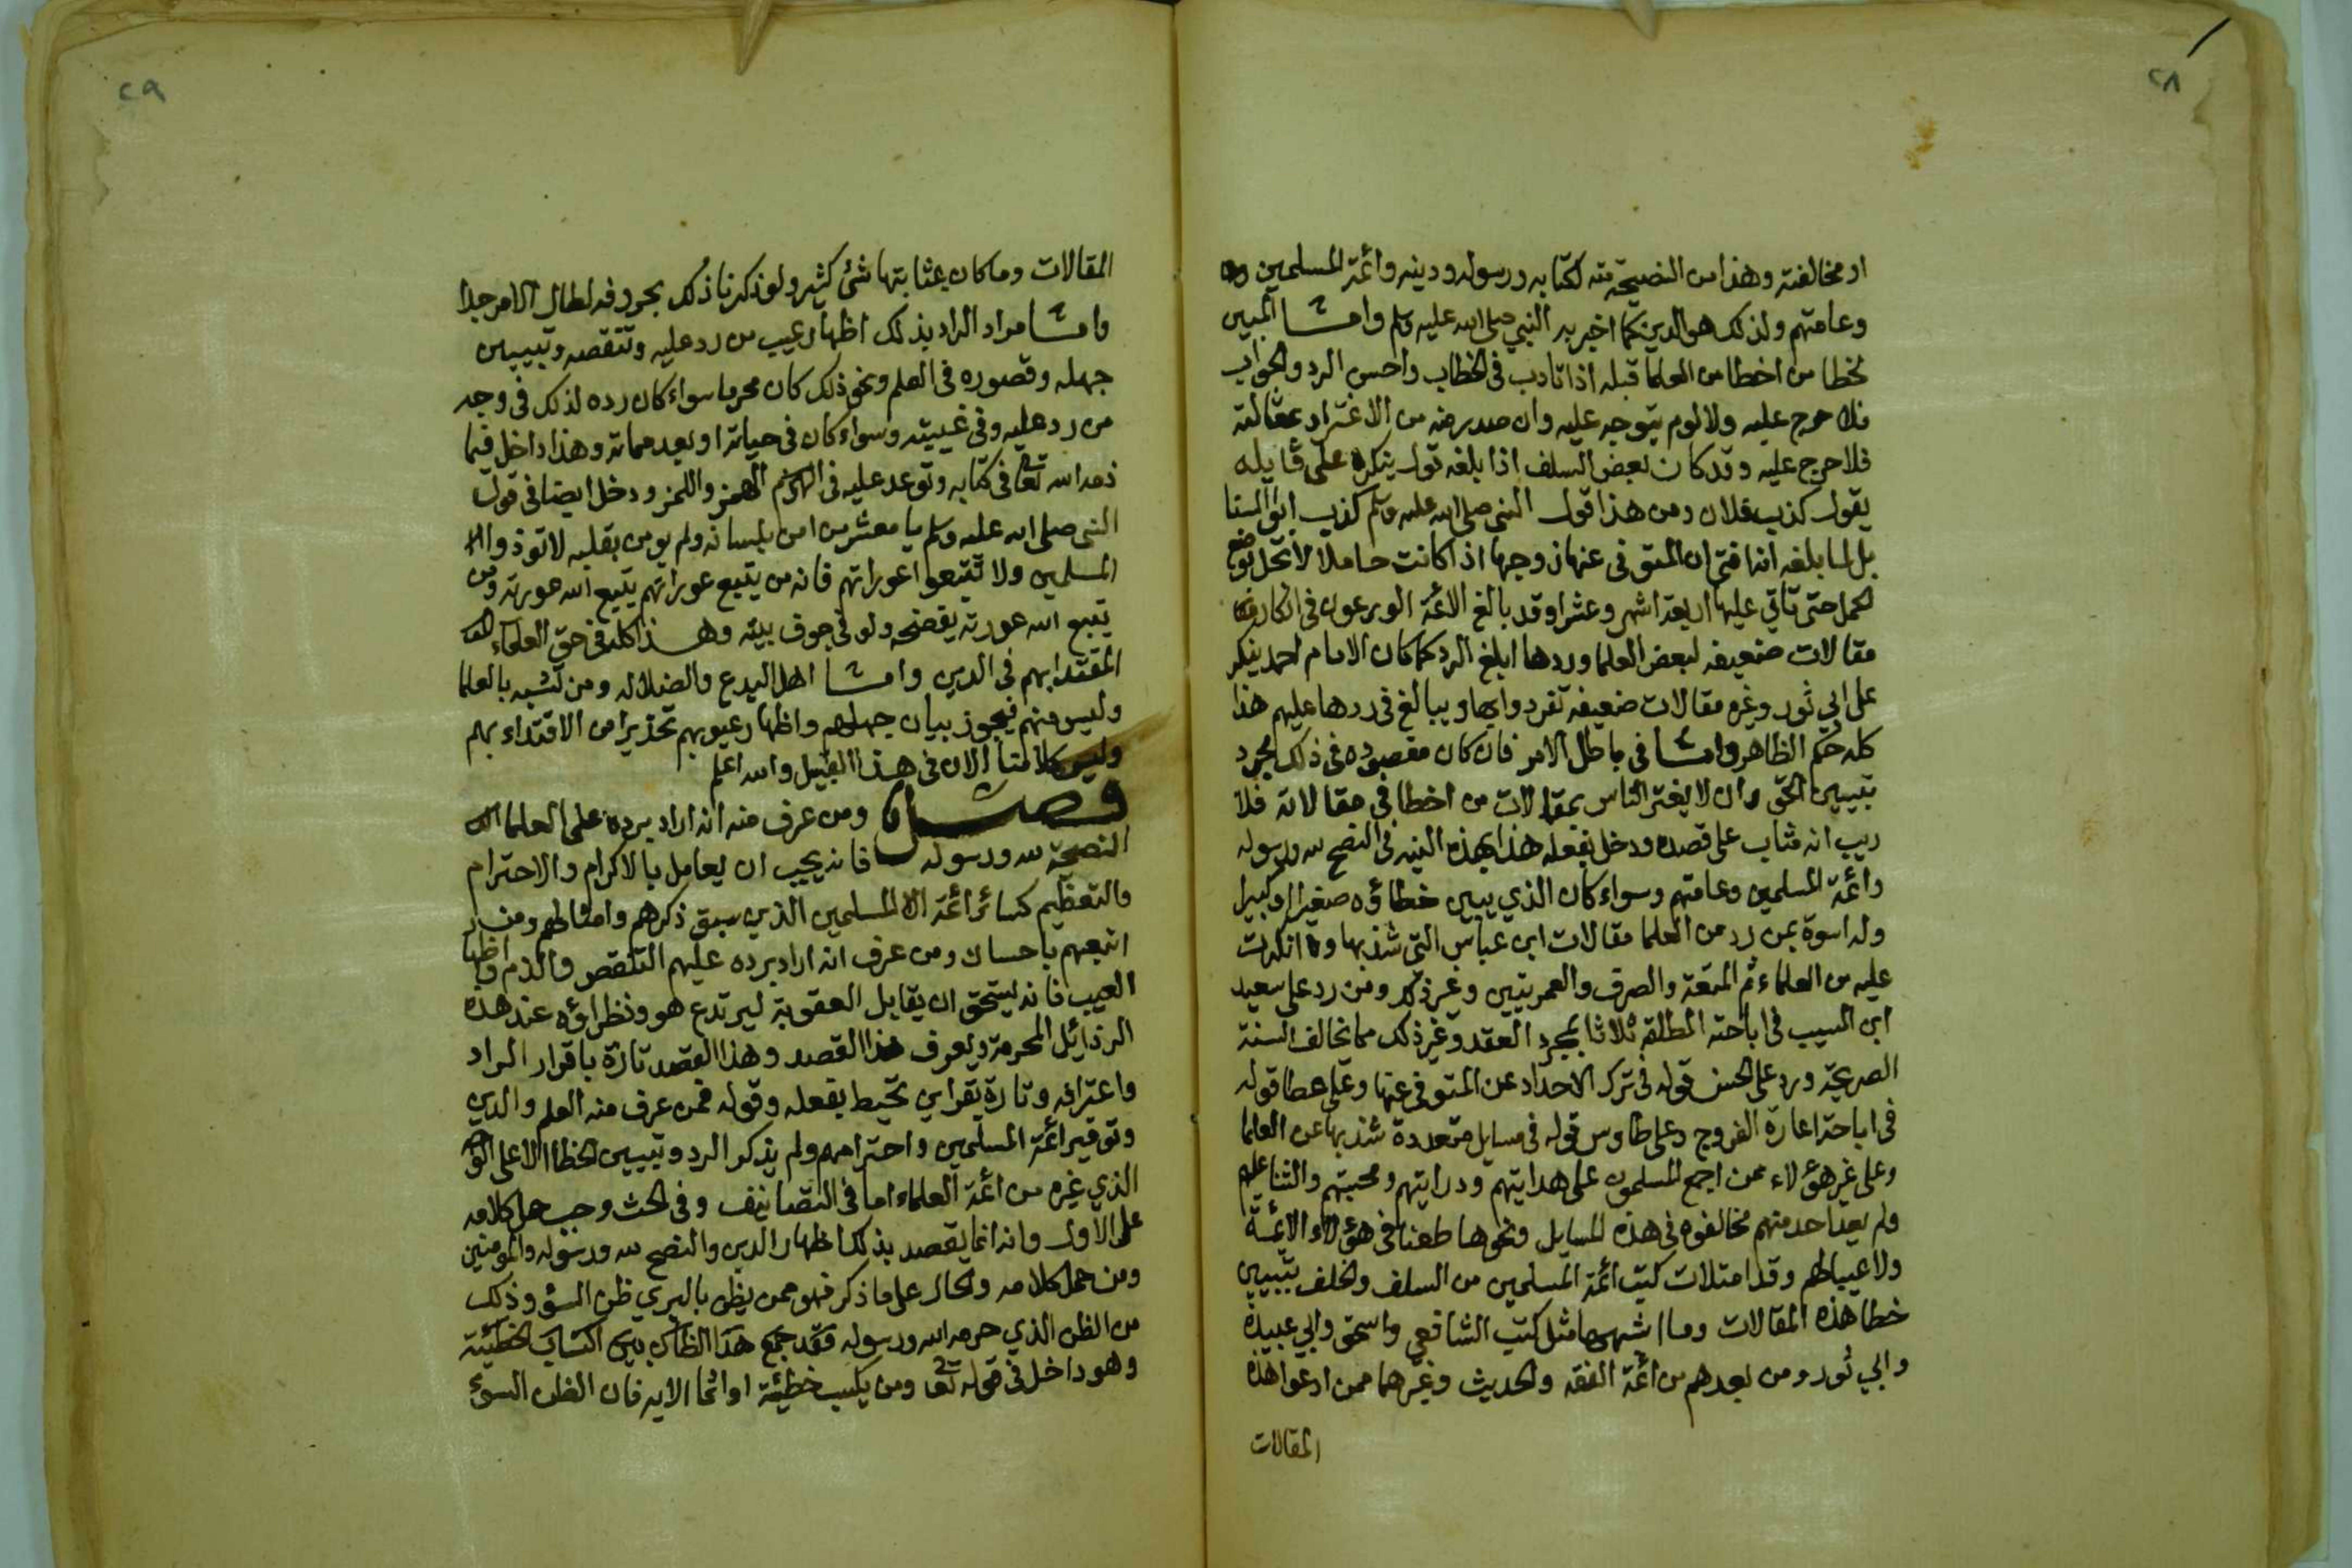 ٢٨
او مخالفته وهذا من النصيحة منه لكتابه ورسوله ودينه وائمة المسلمين
وعامتهم ولذلك هو الدين كما اخبر به النبي صلى الله عليه وسلم وامـــا المبين
لخطا من اخطا من العلما قبله اذا تادب في الخطاب واحسن الرد والجواب
فلا حرج عليه ولا لوم يتوجه عليه وان صدر منه من الاغترار بمقالته
فلا حرج عليه وقد كان بعض السلف اذا بلغه قول ينكره على قايله
يقول كذب فلان ومن هذا قول النبي صلى الله عليه وسلم كذب ابو السنا
بل لما بلغه انه افتى ان المتوفى عنها زوجها اذا كانت حاملا لا تحل بوضع
الحمل حتى تاتي عليها اربعة اشهر وعشرا وقد بالغ الائمة الورعون في انكار
مقالات ضعيفه لبعض العلما وردها ابلغ الرد كما كان الامام احمد ينكر
على ابي ثور وغيره مقالات ضعيفه تفردوا بها ويبالغ في ردها عليهم هذا
كله حكم الظاهر وامـــا في باطن الامر فان كان مقصوده في ذلك مجرد
تبيين الحق وان لا يغتر الناس بمقالات من اخطا في مقالاته فلا
ريب انه مثاب على قصده ودخل بفعله هذا بهذه النية في النصح لله ورسوله
وائمة المسلمين وعامتهم وسواء كان الذي يبين خطاؤه صغيرا او كبيرا
وله اسوة بمن رد من العلما مقالات ابن عباس التي شذ بها وانكرت
عليه من العلماء ثم المتعة والصرف والعمرتين وغير ذلك ومن رد على سعيد
ابن المسيب في اباحته المطلقه ثلاثا بمجرد العقد وغير ذلك مما يخالف السنة
الصريحة ورد على الحسن قوله في ترك الاحداد عن المتوفى عنها وعلى عطا قوله
في اباحة اعارة الفروج وعلى طاوس قوله في مسايل متعددة شذ بها عن العلما
وعلى غير هؤلاء ممن اجمع المسلمون على هدايتهم ودرايتهم ومحبتهم والثنا عليهم
ولم يعد احد منهم مخالفوه في هذه المسايل ونحوها طعنا في هؤلاء الائمة
ولا عيبا لهم وقد امتلات كتب ائمة المسلمين من السلف والخلف بتبيين
خطا هذه المقالات وما اشبهها مثل كتب الشافعي واسحق وابي عبيدة
وابي ثور ومن بعدهم من ائمة الفقه والحديث وغيرهما ممن ادعوا هذه
المقالات
٢٩
المقالات وما كان بمثابتها شئ كثير ولو ذكرنا ذلك بحروفه لطال الامر جدا
وامـــا مراد الراد بذلك اظهار عيب من رد عليه وتنقصه وتبيين
جهله وقصوره في العلم ونحو ذلك كان محرما سواء كان رده لذلك في وجه
من رد عليه وفي غيبته وسواء كان في حياته او بعد مماته وهذا داخل فيما
ذمه الله تعالى في كتابه وتوعد عليه في الهمز واللمز ودخل ايضا في قول
النبي صلى الله عليه وسلم يا معشر من امن بلسانه ولم يومن بقلبه لا توذوا
المسلمين ولا تتبعوا عوراتهم فانه من يتبع عوراتهم يتبع الله عورته ومن
يتبع الله عورته يفضحه ولو في جوف بيته وهـــذا كله في حق العلماء
المقتدا بهم في الدين وامـــا اهل البدع والضلاله ومن تشبه بالعلما
وليس منهم فيجوز بيان جهلهم واظهار عيوبهم تحذيرا من الاقتداء بهم
وليس كلامنا الان في هذا القبيل والله اعلم
فصـــل ومن عرف منه انه اراد برده على العلما
النصيحة لله ورسوله فانه يجب ان يعامل بالاكرام والاحترام
والتعظيم كسائر ائمة المسلمين الذين سبق ذكرهم وامثالهم ومن
اتبعهم باحسان ومن عرف انه اراد برده عليهم التنقص والذم واظهار
العيب فانه يستحق ان يقابل العقوبة ليرتدع هو ونظراؤه عند هذه
الرذائل المحرمة ويعرف هذا القصد وهذا القصد تارة باقرار الراد
واعترافه وتارة بقراين تحيط بفعله وقوله فمن عرف منه العلم والدين
وتوقير ائمة المسلمين واحترامهم ولم يذكر الرد وتبيين الخطا الا على الوجه
الذي غيره من ائمة العلماء اما في التصانيف وفي البحث وجب حمل كلامه
على الاول وانه انما يقصد بذلك اظهار الدين والنصح لله ورسوله والمومنين
ومن حمل كلامه والحال على ما ذكر فهو ممن يظن بالبري ظن السؤ وذلك
من الظن الذي حرمه الله ورسوله فقد جمع هذا الظان بين اكتساب الخطيئة
وهو داخل في قوله تعالى ومن يكسب خطيئة او اثما الايه فان الظن السوء